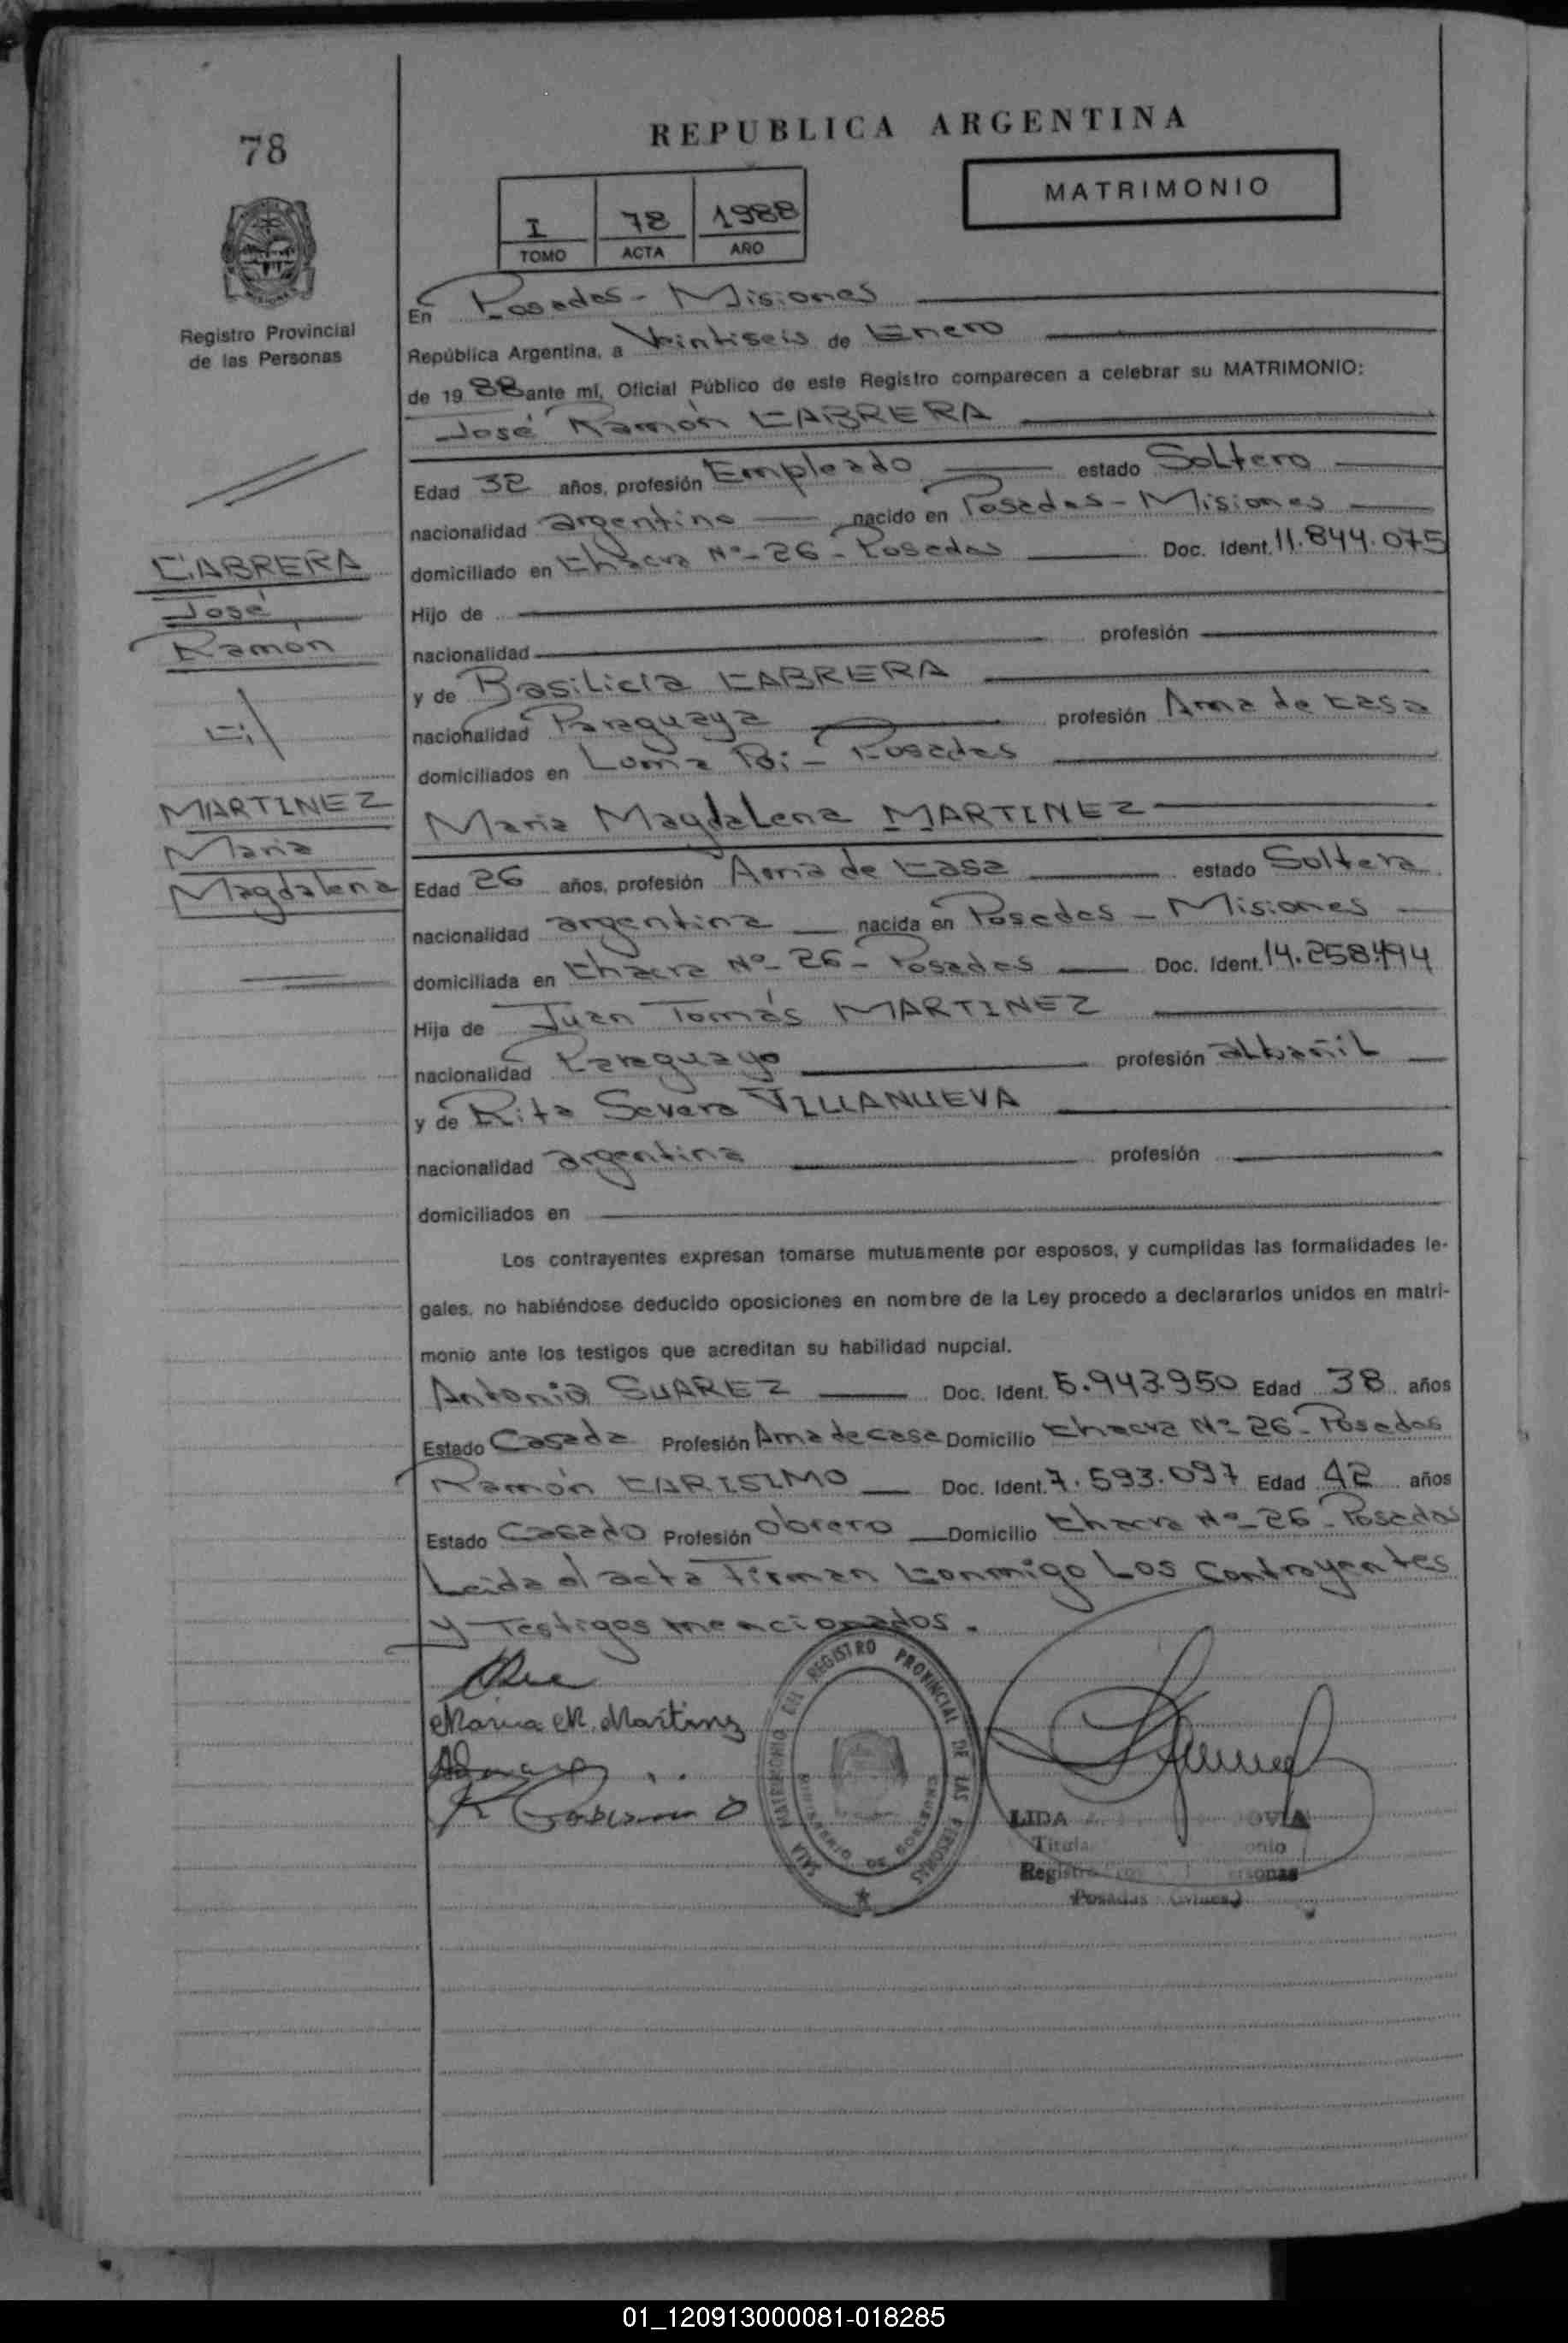 78
REPUBLICA ARGENTINA
MATRIMONIO
I 78 1988
TOMO ACTA AÑO
Registro Provincial
de las Personas
En Posadas - Misiones
República Argentina, a Veintiseis de Enero
de 1988 ante mí, Oficial Público de este Registro comparecen a celebrar su MATRIMONIO:
José Ramón CABRERA
Edad 32 años, profesión Empleado estado Soltero
nacionalidad argentino nacido en Posadas - Misiones
domiciliado en Chacra Nº 26 - Posadas Doc. Ident. 11.844.075
Hijo de
nacionalidad profesión
y de Basilicia CABRERA
nacionalidad Paraguaya profesión Ama de Casa
domiciliados en Loma Poi - Posadas
CABRERA
José
Ramón
c/
MARTINEZ
Maria
Magdalena
Maria Magdalena MARTINEZ
Edad 26 años, profesión Ama de Casa estado Soltera
nacionalidad argentina nacida en Posadas - Misiones
domiciliada en Chacra Nº 26 - Posadas Doc. Ident. 14.258.494
Hija de Juan Tomás MARTINEZ
nacionalidad Paraguayo profesión albañil
y de Rita Severa VILLANUEVA
nacionalidad argentina profesión
domiciliados en
Los contrayentes expresan tomarse mutuamente por esposos, y cumplidas las formalidades le-
gales, no habiéndose deducido oposiciones en nombre de la Ley procedo a declararlos unidos en matri-
monio ante los testigos que acreditan su habilidad nupcial.
Antonia SUAREZ Doc. Ident. 5.943.950 Edad 38 años
Estado Casada Profesión Ama de casa Domicilio Chacra Nº 26 - Posadas
Ramón CARISIMO Doc. Ident. 7.593.097 Edad 42 años
Estado Casado Profesión obrero Domicilio Chacra Nº 26 - Posadas
Leida el acta Firman Conmigo Los Contrayentes
y Testigos mencionados.
Maria M. Martinz
SALA MATRIMONIO DEL REGISTRO PROVINCIAL DE LAS PERSONAS
MINISTERIO DE GOBIERNO
LIDA
Registro
Posadas
01_120913000081-018285